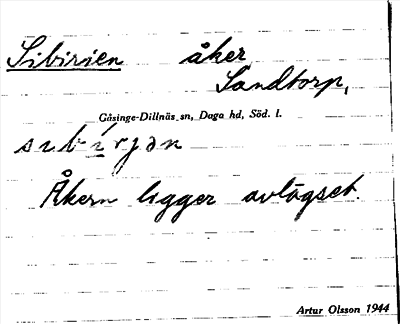 Sibirien åker
Sandtorp,
Gåsinge-Dillnäs sn, Daga hd, Söd. l.
sɩbírjən
Åkern ligger avlägset.
Artur Olsson 1944